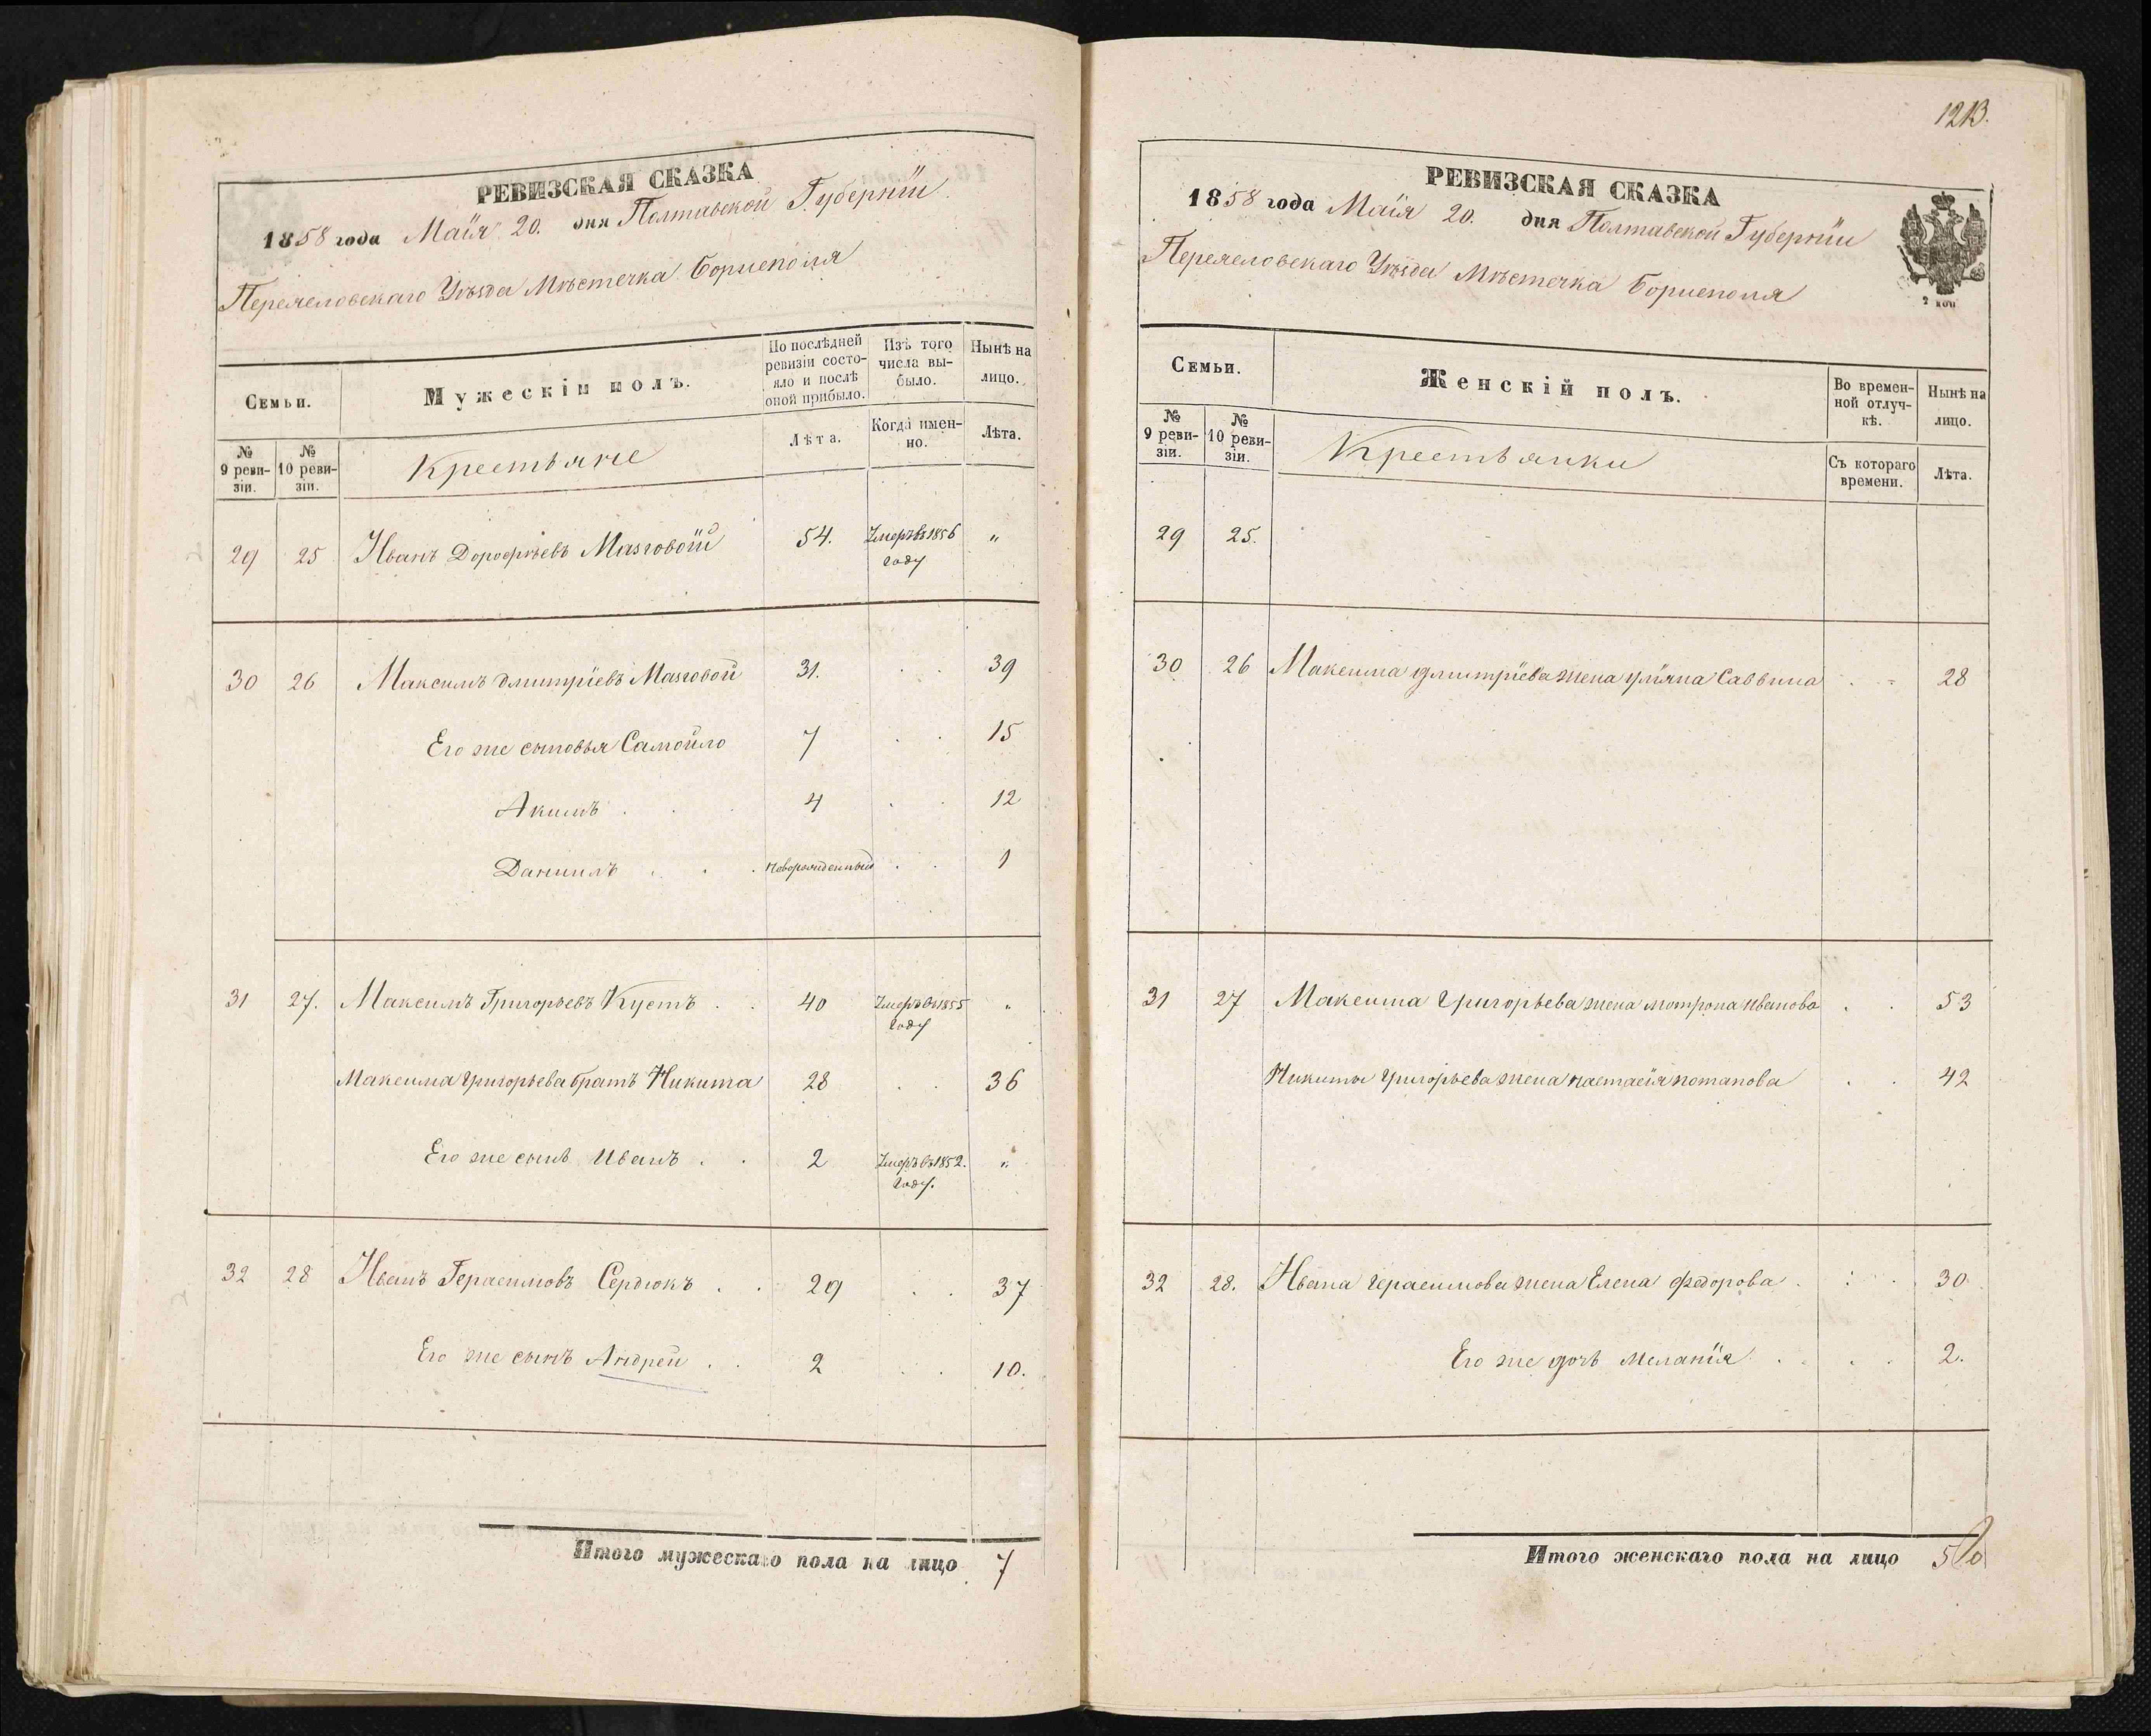 РЕВИЗСКАЯ СКАЗКА
1858 года Маія 20. дня Полтавской Губерніи
Переясловскаго Уѣзда Мѣстечка Борисполя
Семьи.
Мужескій полъ.
По послѣдней ревизіи состояло и послѣ оной прибыло.
Изъ того числа выбыло.
Нынѣ на лицо.
№ 9 ревизіи.
№ 10 ревизіи.
Крестьяне
Лѣта.
Когда именно.
Лѣта.
29 25 Иванъ Дорофѣевъ Мазговой 54. Умеръ въ 1856 году "
30 26 Максимъ Дмитріевъ Мазговой 31. 39
Его же сыновья Самойло 7 15
Акимъ 4 12
Даниилъ новорожденный 1
31 27. Максимъ Григорьевъ Кустъ 40 Умеръ въ 1855 году "
Максима Григорьева братъ Никита 28 36
Его же сынъ Иванъ 2 Умеръ въ 1852. году. "
32 28 Иванъ Герасимовъ Сердюкъ 29 37
Его же сынъ Андрей 2 10.
Итого мужескаго пола на лицо 7
1213.
РЕВИЗСКАЯ СКАЗКА
1858 года Маія 20. дня Полтавской Губерніи
Переясловскаго Уѣзда Мѣстечка Борисполя
2 коп
Семьи.
Женскій полъ.
Во временной отлучкѣ.
Нынѣ на лицо.
№ 9 ревизіи.
№ 10 ревизіи.
Крестьянки
Съ котораго времени.
Лѣта.
29 25.
30 26 Максима Дмитріева жена Уліяна Саввина 28
31 27 Максима Григорьева жена Мотрона Иванова 53
Никиты Григорьева жена Настасія Потапова 42
32 28. Ивана Герасимова жена Елена Федорова 30
Его же дочь Меланія 2.
Итого женскаго пола на лицо 5